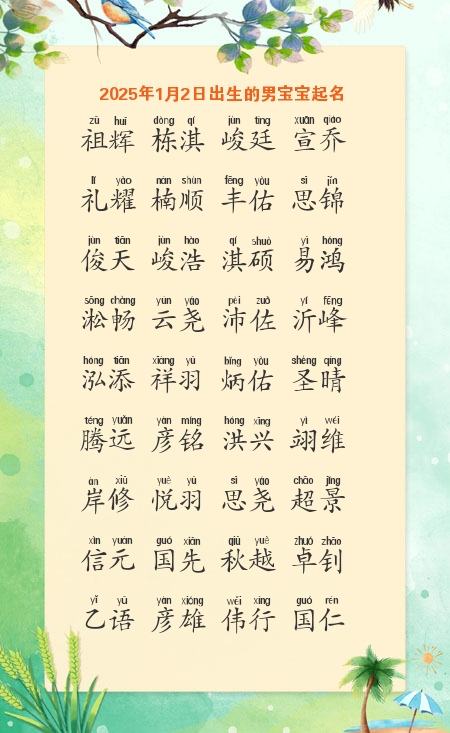 2025年1月2日出生的男宝宝起名
zǔ huī dòng qí jùn tíng xuān qiáo
祖辉 栋淇 峻廷 宣乔
lǐ yào nán shùn fēng yòu sī jǐn
礼耀 楠顺 丰佑 思锦
jùn tiān jùn hào qí shuò yì hóng
俊天 峻浩 淇硕 易鸿
sōng chàng yún yáo pèi zuǒ yí fēng
淞畅 云尧 沛佐 沂峰
hóng tiān xiáng yǔ bǐng yòu shèng qíng
泓添 祥羽 炳佑 圣晴
téng yuǎn yàn míng hóng xīng yì wéi
腾远 彦铭 洪兴 翊维
àn xiū yuè yǔ sī yáo chāo jǐng
岸修 悦羽 思尧 超景
xìn yuán guó xiān qiū yuè zhuó zhāo
信元 国先 秋越 卓钊
yǐ yǔ yàn xióng wěi xíng guó rén
乙语 彦雄 伟行 国仁